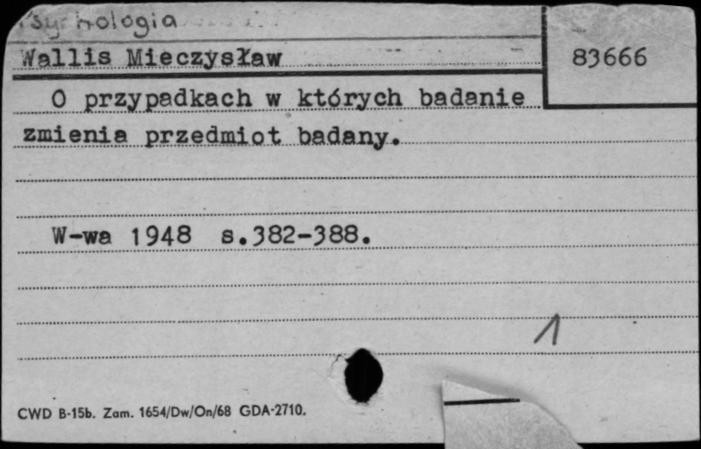 Psychologia
Wallis Mieczysław
83666
O przypadkach w których badanie
zmienia przedmiot badany.
W-wa 1948 s.382-388.
1
CWD B-15b. Zam. 1654/Dw/On/68 GDA-2710.